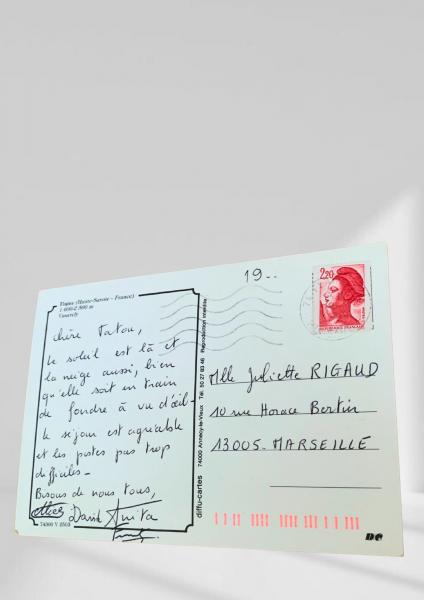 Flaine (Haute-Savoie - France)
1 600-2 500 m
Vasarely
chère Tatou,
le soleil est là et
la neige aussi, bien
qu'elle soit en train
de fondre à vue d'œil -
le séjour est agréable
et les pistes pas trop
difficiles -
Bisous de nous tous,
David Anita
74300 V 8503
diffu-cartes 74000 Annecy-le-Vieux Tél. 50 27 83 46 Reproduction interdite
19--
2,20
REPUBLIQUE FRANÇAISE
Mlle Juliette RIGAUD
10 rue Horace Bertin
13005. MARSEILLE
DC